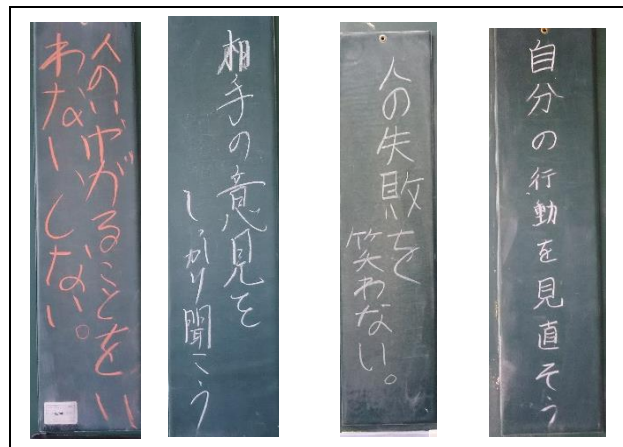 人のいやがることをい
わない、しない。
相手の意見を
しっかり聞こう
人の失敗を
笑わない。
自分の行動を見直そう